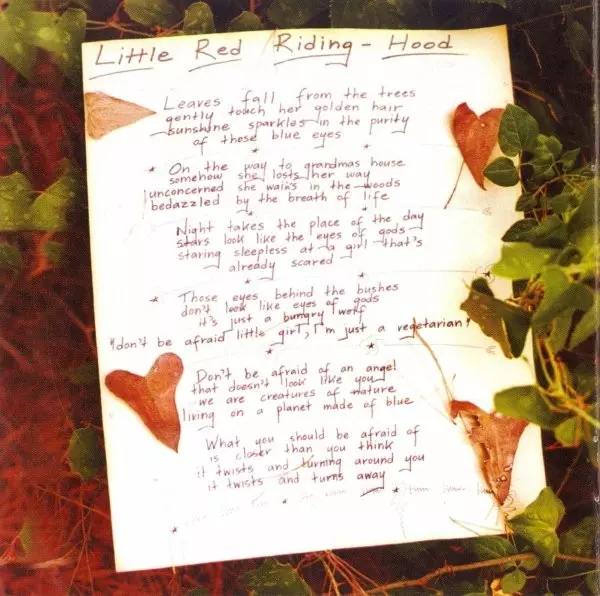 Little Red Riding - Hood
Leaves fall from the trees
gently touch her golden hair
sunshine sparkles in the purity
of those blue eyes
* On the way to grandmas house
somehow she losts her way
unconcerned she walks in the woods
bedazzled by the breath of life
Night takes the place of the day
stars look like the eyes of gods
staring sleepless at a girl that's
already scared
* Those eyes behind the bushes
don't look like eyes of gods
it's just a hungry wolf
"don't be afraid little girl, I'm just a vegetarian"
Don't be afraid of an angel
that doesn't look like you
we are creatures of nature
living on a planet made of blue
What you should be afraid of
is closer than you think
it twists and turning around you
it twists and turns away